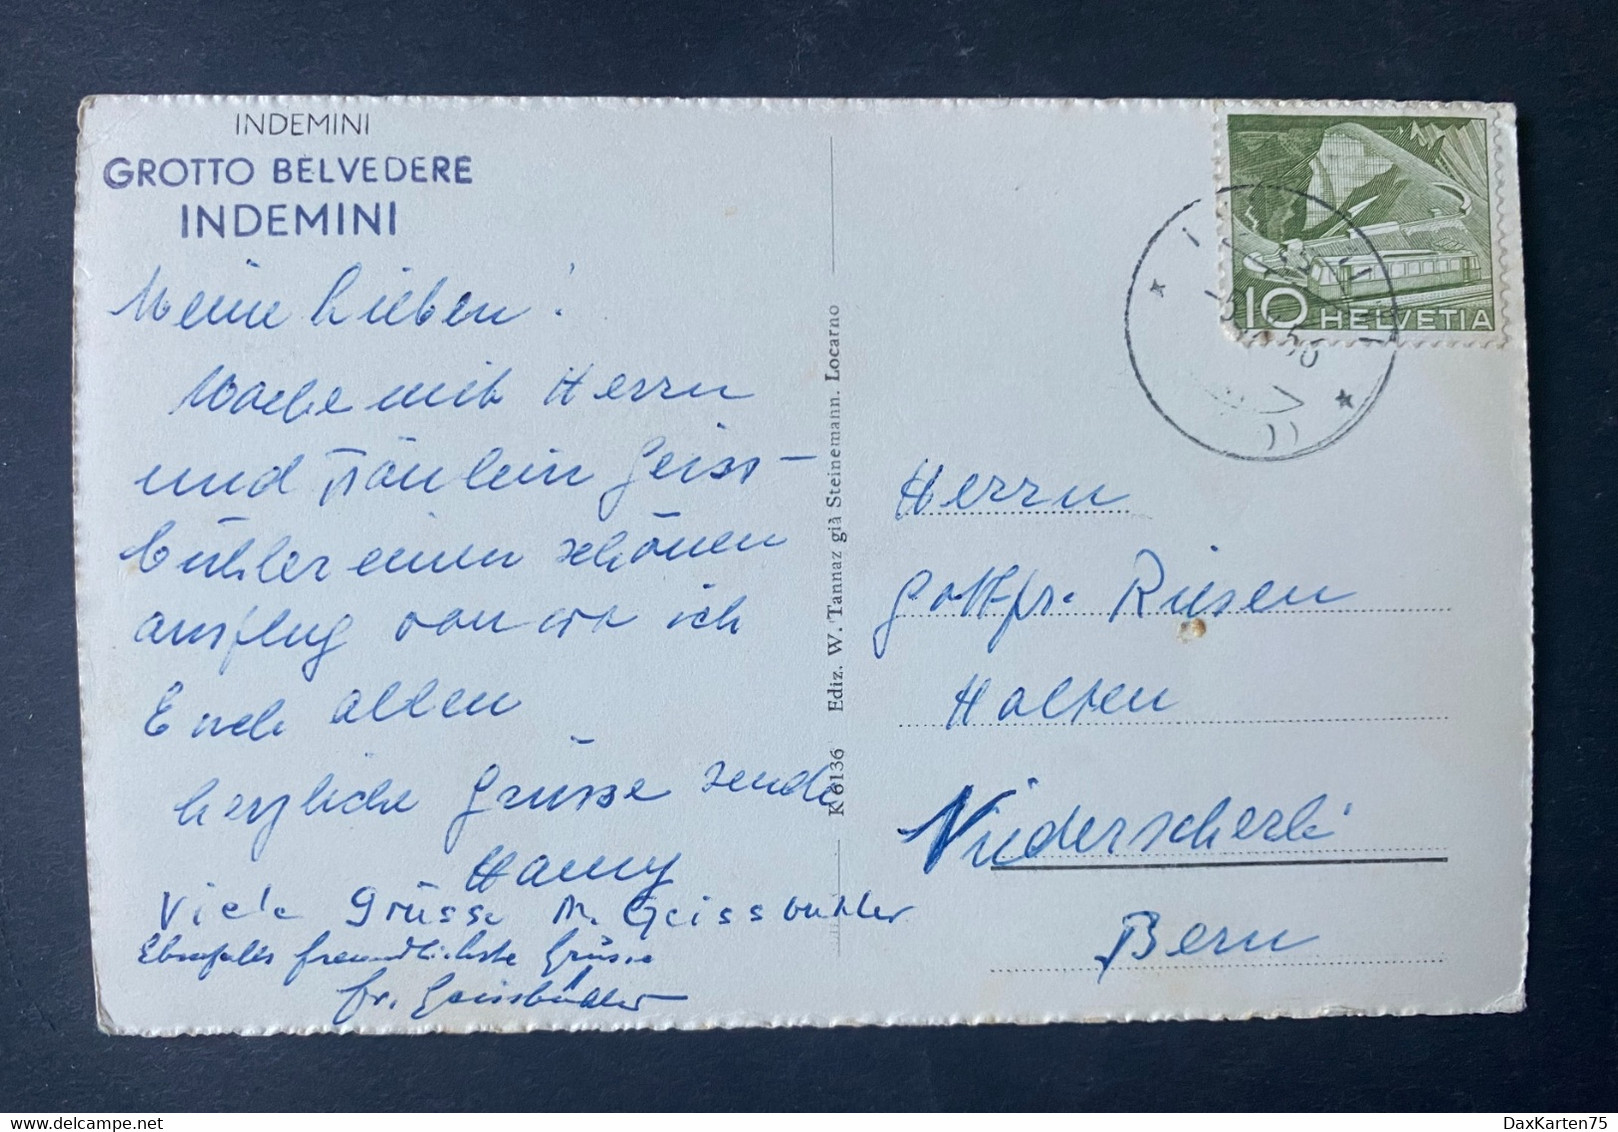 INDEMINI
GROTTO BELVEDERE
INDEMINI
Meine Lieben!
Mache mit Herrn
und Fräulein Geiss-
bühler einen schönen
ausflug von wo ich
Euch allen
herzliche Grüsse sende
Hanny
Viele Grüsse M. Geissbühler
Ebenfalls freundlichste Grüsse
Fr. Geissbühler
K 6136 Ediz. W. Tannaz già Steinemann. Locarno
10 HELVETIA
Herrn
Gottfr. Riesen
Halten
Niederscherli
Bern
DaxKarten75